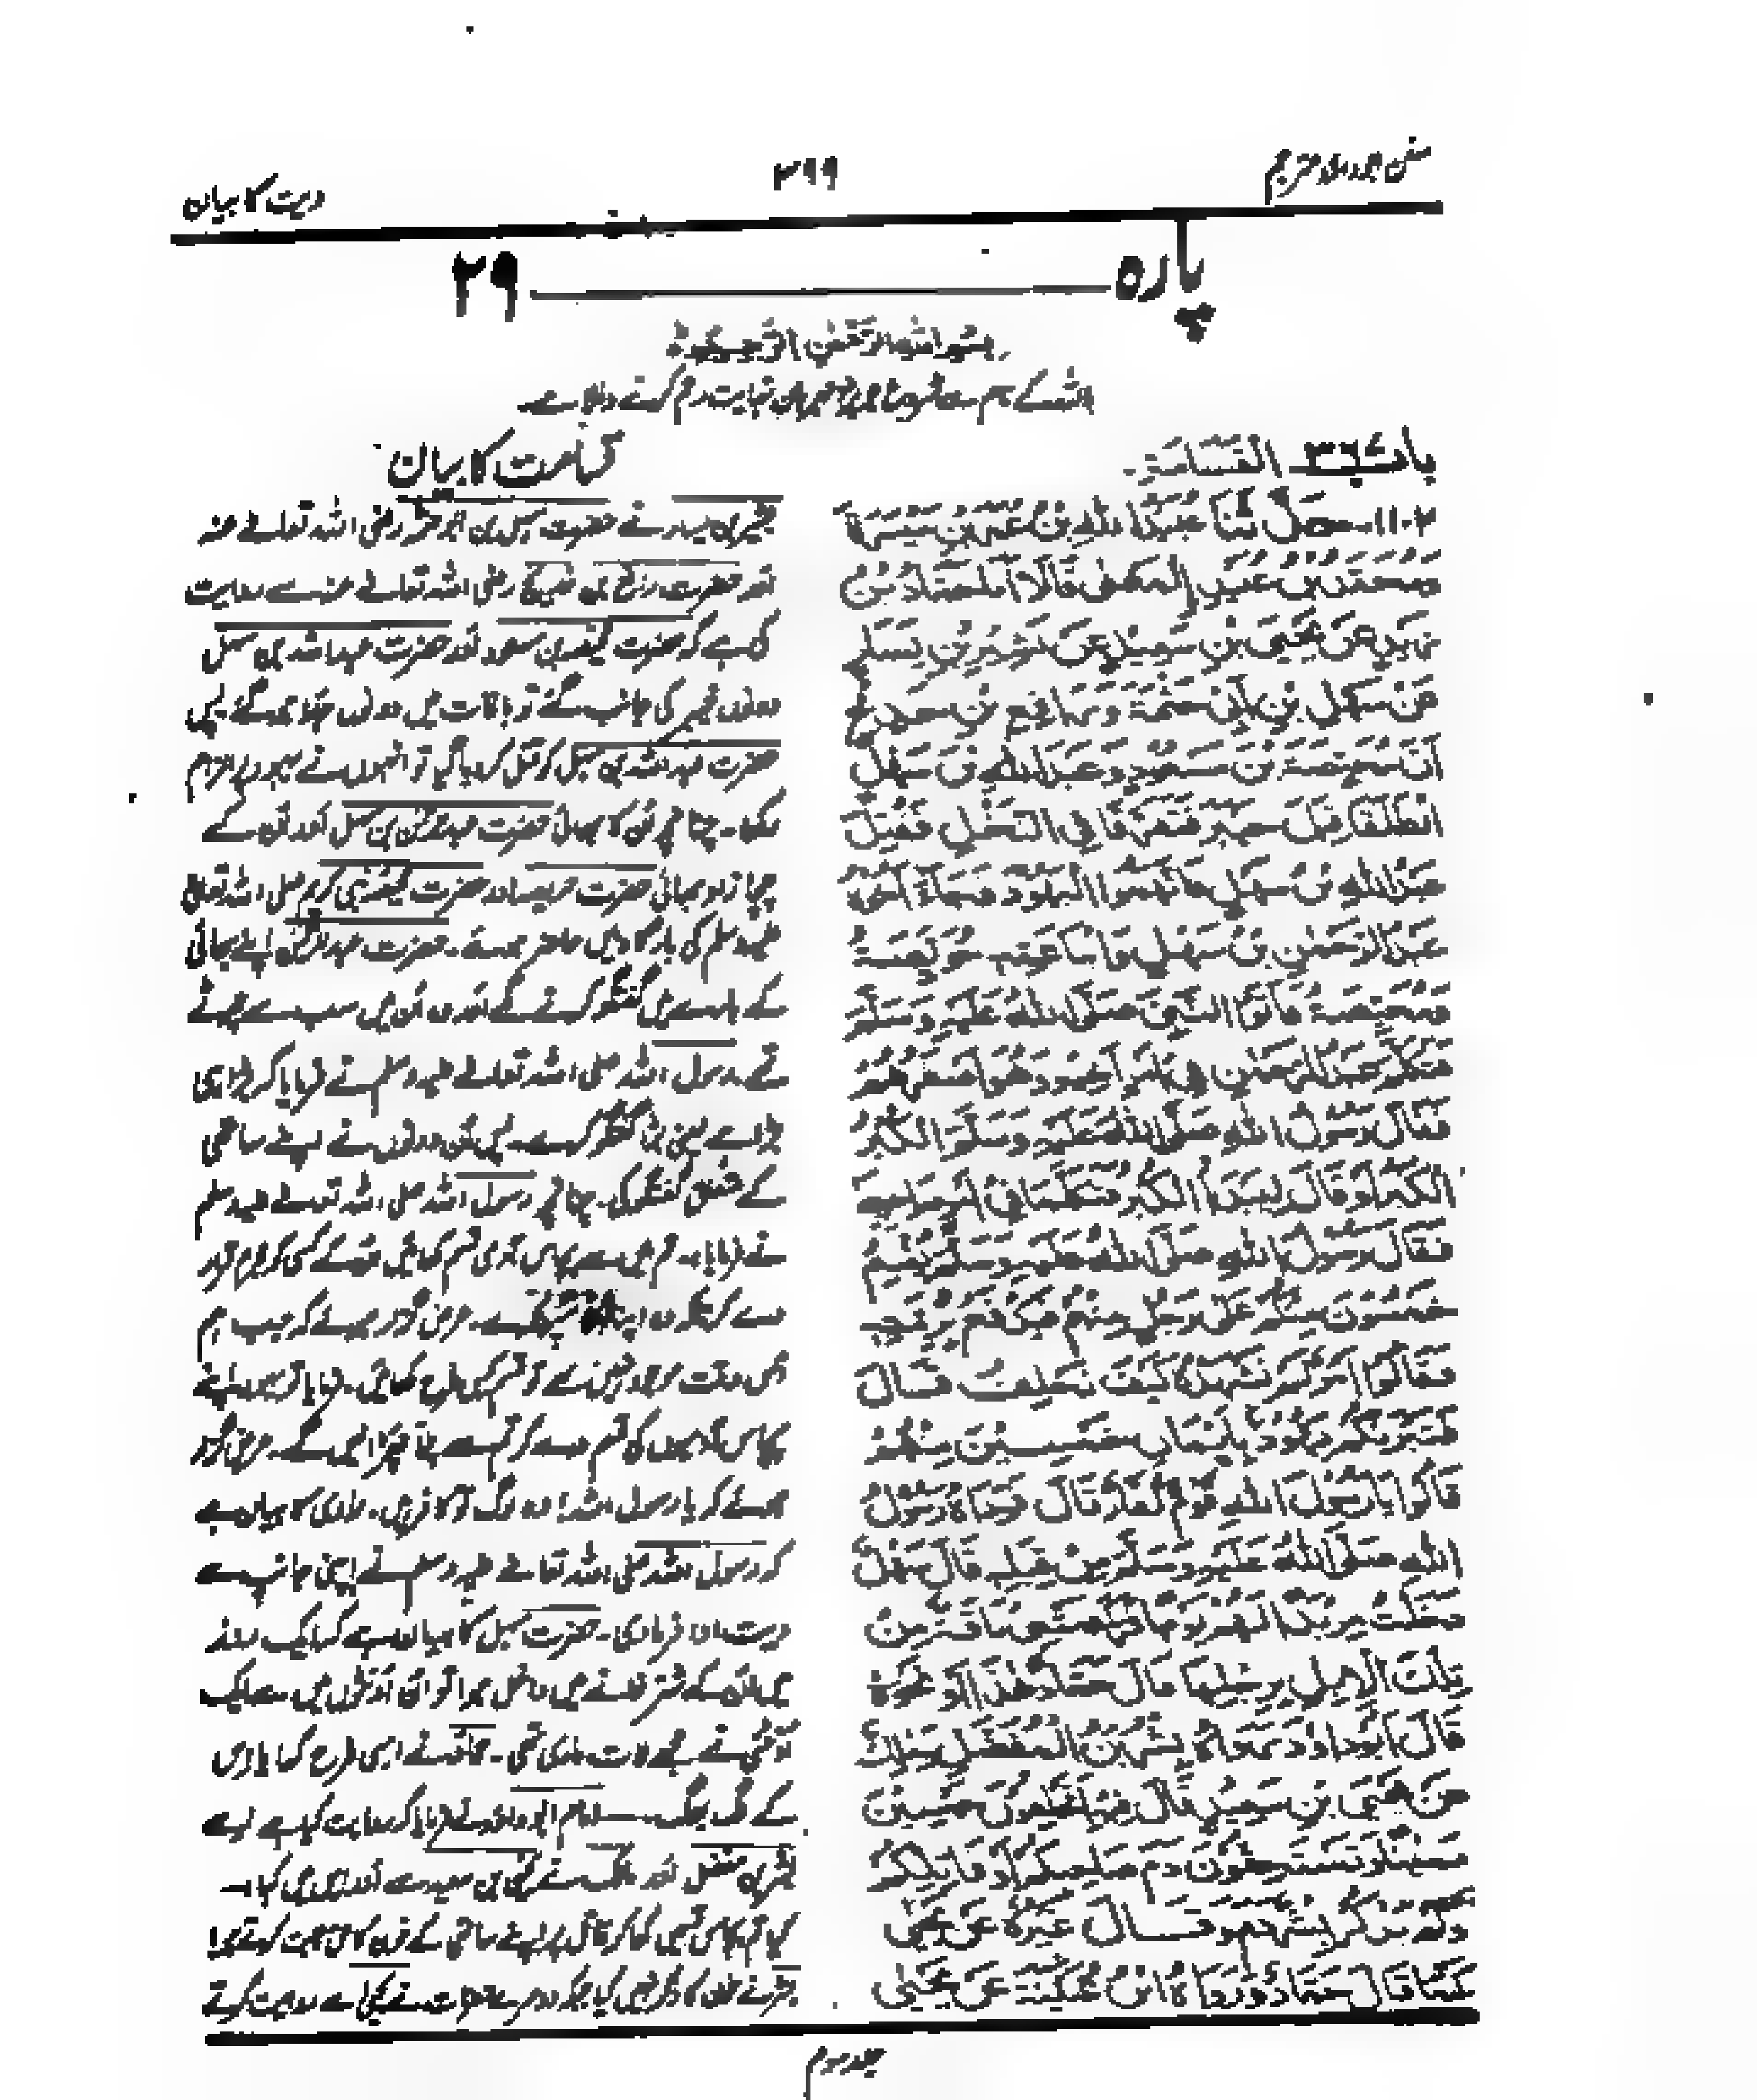 سنن ابوداؤد مترجم
۳۹۹
دیت کا بیان
پارہ ۲۹
بسم الله الرحمن الرحيم
اللہ کے نام سے شروع جو بڑا مہربان نہایت رحم کرنے والا ہے
باب القسامة
حدثنا عبيد الله بن عمر بن ميسرة
ومحمد بن عبيد المعنى قالا نا حماد بن
زيد عن يحيى بن سعيد عن بشير بن يسار
عن سهل بن ابي حثمة ورافع بن خديج
ان محيصة بن مسعود وعبد الله بن سهل
انطلقا قبل خيبر فتفرقا في النخل فقتل
عبد الله بن سهل فاتهموا اليهود فجاء اخوه
عبد الرحمن بن سهل وابنا عمه حويصة
ومحيصة فاتوا النبي صلى الله عليه وسلم
فتكلم عبد الرحمن في امر اخيه وهو اصغرهم
فقال رسول الله صلى الله عليه وسلم الكبر
الكبر او قال ليبدأ الاكبر فتكلما في امر صاحبهما
فقال رسول الله صلى الله عليه وسلم يقسم
خمسون منكم على رجل منهم فيدفع برمته
فقالوا امر لم نشهده كيف نحلف قال
فتبرئكم يهود بايمان خمسين منهم
قالوا يا رسول الله قوم كفار قال فوداه رسول
الله صلى الله عليه وسلم من قبله قال سهل
دخلت مربدا لهم يوما فركضتني ناقة من
تلك الابل برجلها قال حماد هذا او نحوه
قال ابو داؤد رواه بشر بن المفضل ومالك
عن يحيى بن سعيد قال فيه اتحلفون خمسين
يمينا وتستحقون دم صاحبكم او قاتلكم
ولم يذكر بشر دم وقال عبدة عن يحيى
كما قال حماد ورواه ابن عيينة عن يحيى
قسامت کا بیان
بشیر بن یسار نے حضرت سہل بن ابو حثمہ رضی اللہ تعالیٰ عنہ
اور حضرت رافع بن خدیج رضی اللہ تعالیٰ عنہ سے روایت
کی ہے کہ حضرت محیصہ بن مسعود اور حضرت عبداللہ بن سہل
دونوں خیبر کی جانب گئے تو باغات میں دونوں جدا ہو گئے پس
حضرت عبداللہ بن سہل کو قتل کر دیا گیا تو انہوں نے یہود پر الزام
رکھا۔ چنانچہ ان کا بھائی حضرت عبدالرحمٰن بن سہل اور ان کے
چچا زاد بھائی حضرت حویصہ اور حضرت محیصہ نبی کریم صلی اللہ تعالیٰ
علیہ وسلم کی بارگاہ میں حاضر ہوئے۔ حضرت عبدالرحمٰن اپنے بھائی
کے بارے میں گفتگو کرنے لگے اور وہ ان میں سب سے چھوٹے
تھے۔ رسول اللہ صلی اللہ تعالیٰ علیہ وسلم نے فرمایا کہ بڑا آدمی
بڑا ہے یعنی بڑا گفتگو کرے۔ پس ان دونوں نے اپنے ساتھی
کے متعلق گفتگو کی۔ چنانچہ رسول اللہ صلی اللہ تعالیٰ علیہ وسلم
نے فرمایا: تم میں سے پچاس آدمی قسم کھائیں ان کے کسی کو مجرم قرار
دے کر تاکہ وہ اپنا۔ عرض گزار ہوئے کہ جب ہم
اس وقت موجود نہیں تھے تو قسم کس طرح کھائیں۔ فرمایا تو یہود اپنے
پچاس آدمیوں کی قسم دے کر تم سے چھٹکارا پائیں گے۔ عرض گزار
ہوئے کہ یا رسول اللہ! وہ لوگ تو کافر ہیں۔ راوی کا بیان ہے
کہ رسول اللہ صلی اللہ تعالیٰ علیہ وسلم نے اپنی جانب سے
دیت ادا فرما دی۔ حضرت سہل کا بیان ہے کہ ایک روز
میں ان کے شتر خانے میں داخل ہوا تو ان اونٹوں میں سے ایک
اونٹنی نے مجھے لات ماری تھی۔ حماد نے اسی طرح کہا یا اس
کے لگ بھگ۔ امام ابو داؤد نے فرمایا کہ روایت کیا ہے اسے
بشر بن مفضل اور مالک نے یحییٰ بن سعید سے اور اس میں کہا:۔
کیا تم پچاس قسمیں کھا کر قاتل پر اپنے ساتھی کے خون کا حق ثابت کرتے ہو!
بشر نے خون کا ذکر نہیں کیا جبکہ دوسرے حضرات نے یحییٰ سے روایت کرتے
جلد سوم